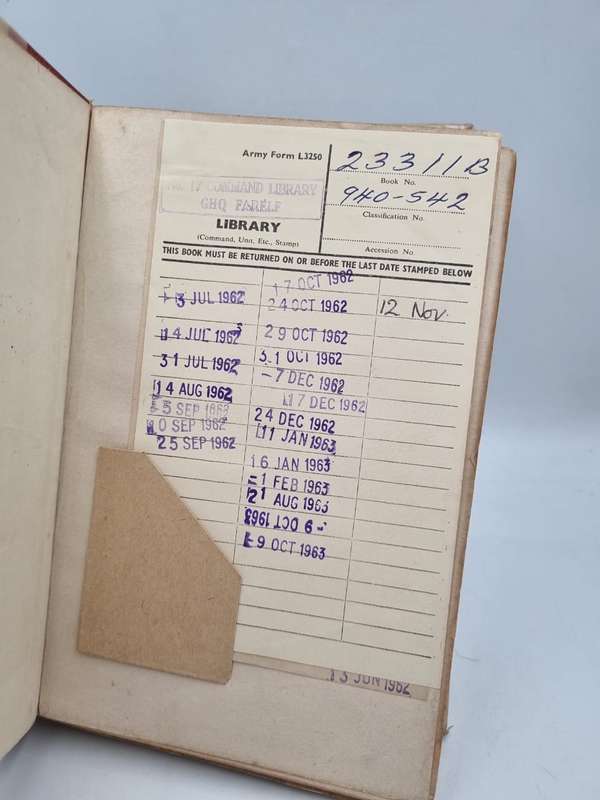 Army Form L3250
23311B
Book No.
No. 17 COMMAND LIBRARY
GHQ FARELF
940-542
Classification No.
LIBRARY
(Command, Unit, Etc., Stamp)
Accession No.
THIS BOOK MUST BE RETURNED ON OR BEFORE THE LAST DATE STAMPED BELOW
3 JUL 1962
14 JUL 1962
31 JUL 1962
14 AUG 1962
5 SEP 1962
0 SEP 1962
25 SEP 1962
17 OCT 1962
24 OCT 1962
29 OCT 1962
31 OCT 1962
-7 DEC 1962
17 DEC 1962
24 DEC 1962
11 JAN 1963
16 JAN 1963
-1 FEB 1963
21 AUG 1963
-9 OCT 1963
-9 OCT 1963
12 Nov.
13 JUN 1962